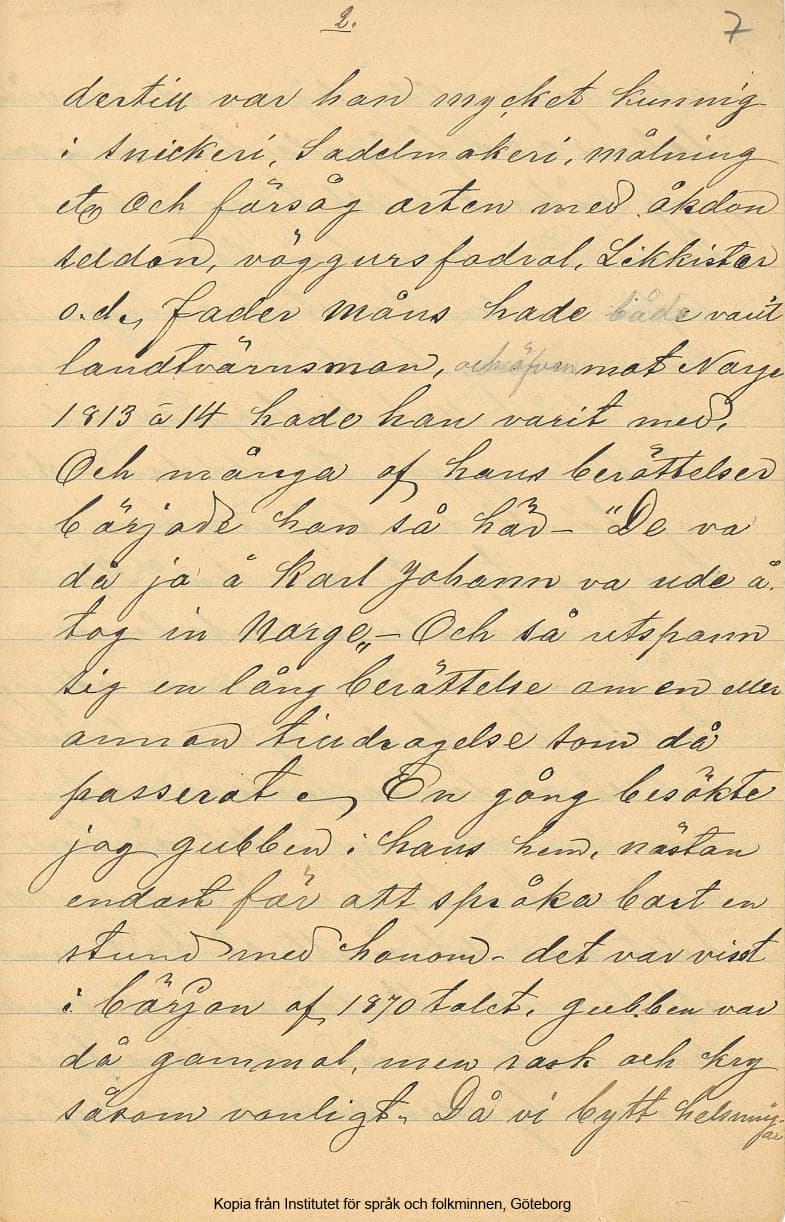 2.
7
dertill var han mycket kunnig
i snickeri, Sadelmakeri, målning
etc Och försåg orten med åkdon
seldon, väggursfodral, Likkistor
o.d., fader Måns hade både varit
landtvärnsman, och äfven mot Norge
1813 à 14 hade han varit med,
Och många af hans berättelser
började han så här - "De va
då ja å Karl Johann va ude å
tog in Norge„ - Och så utspann
sig en lång berättelse om en eller
annan tilldragelse som då
passerat, En gång besökte
jag gubben i hans hem, nästan
endast för att språka bort en
stund med honom - det var visst
i början af 1870 talet, gubben var
då gammal, men rask och kry
såsom vanligt, Då vi bytt helsning-
ar
Kopia från Institutet för språk och folkminnen, Göteborg